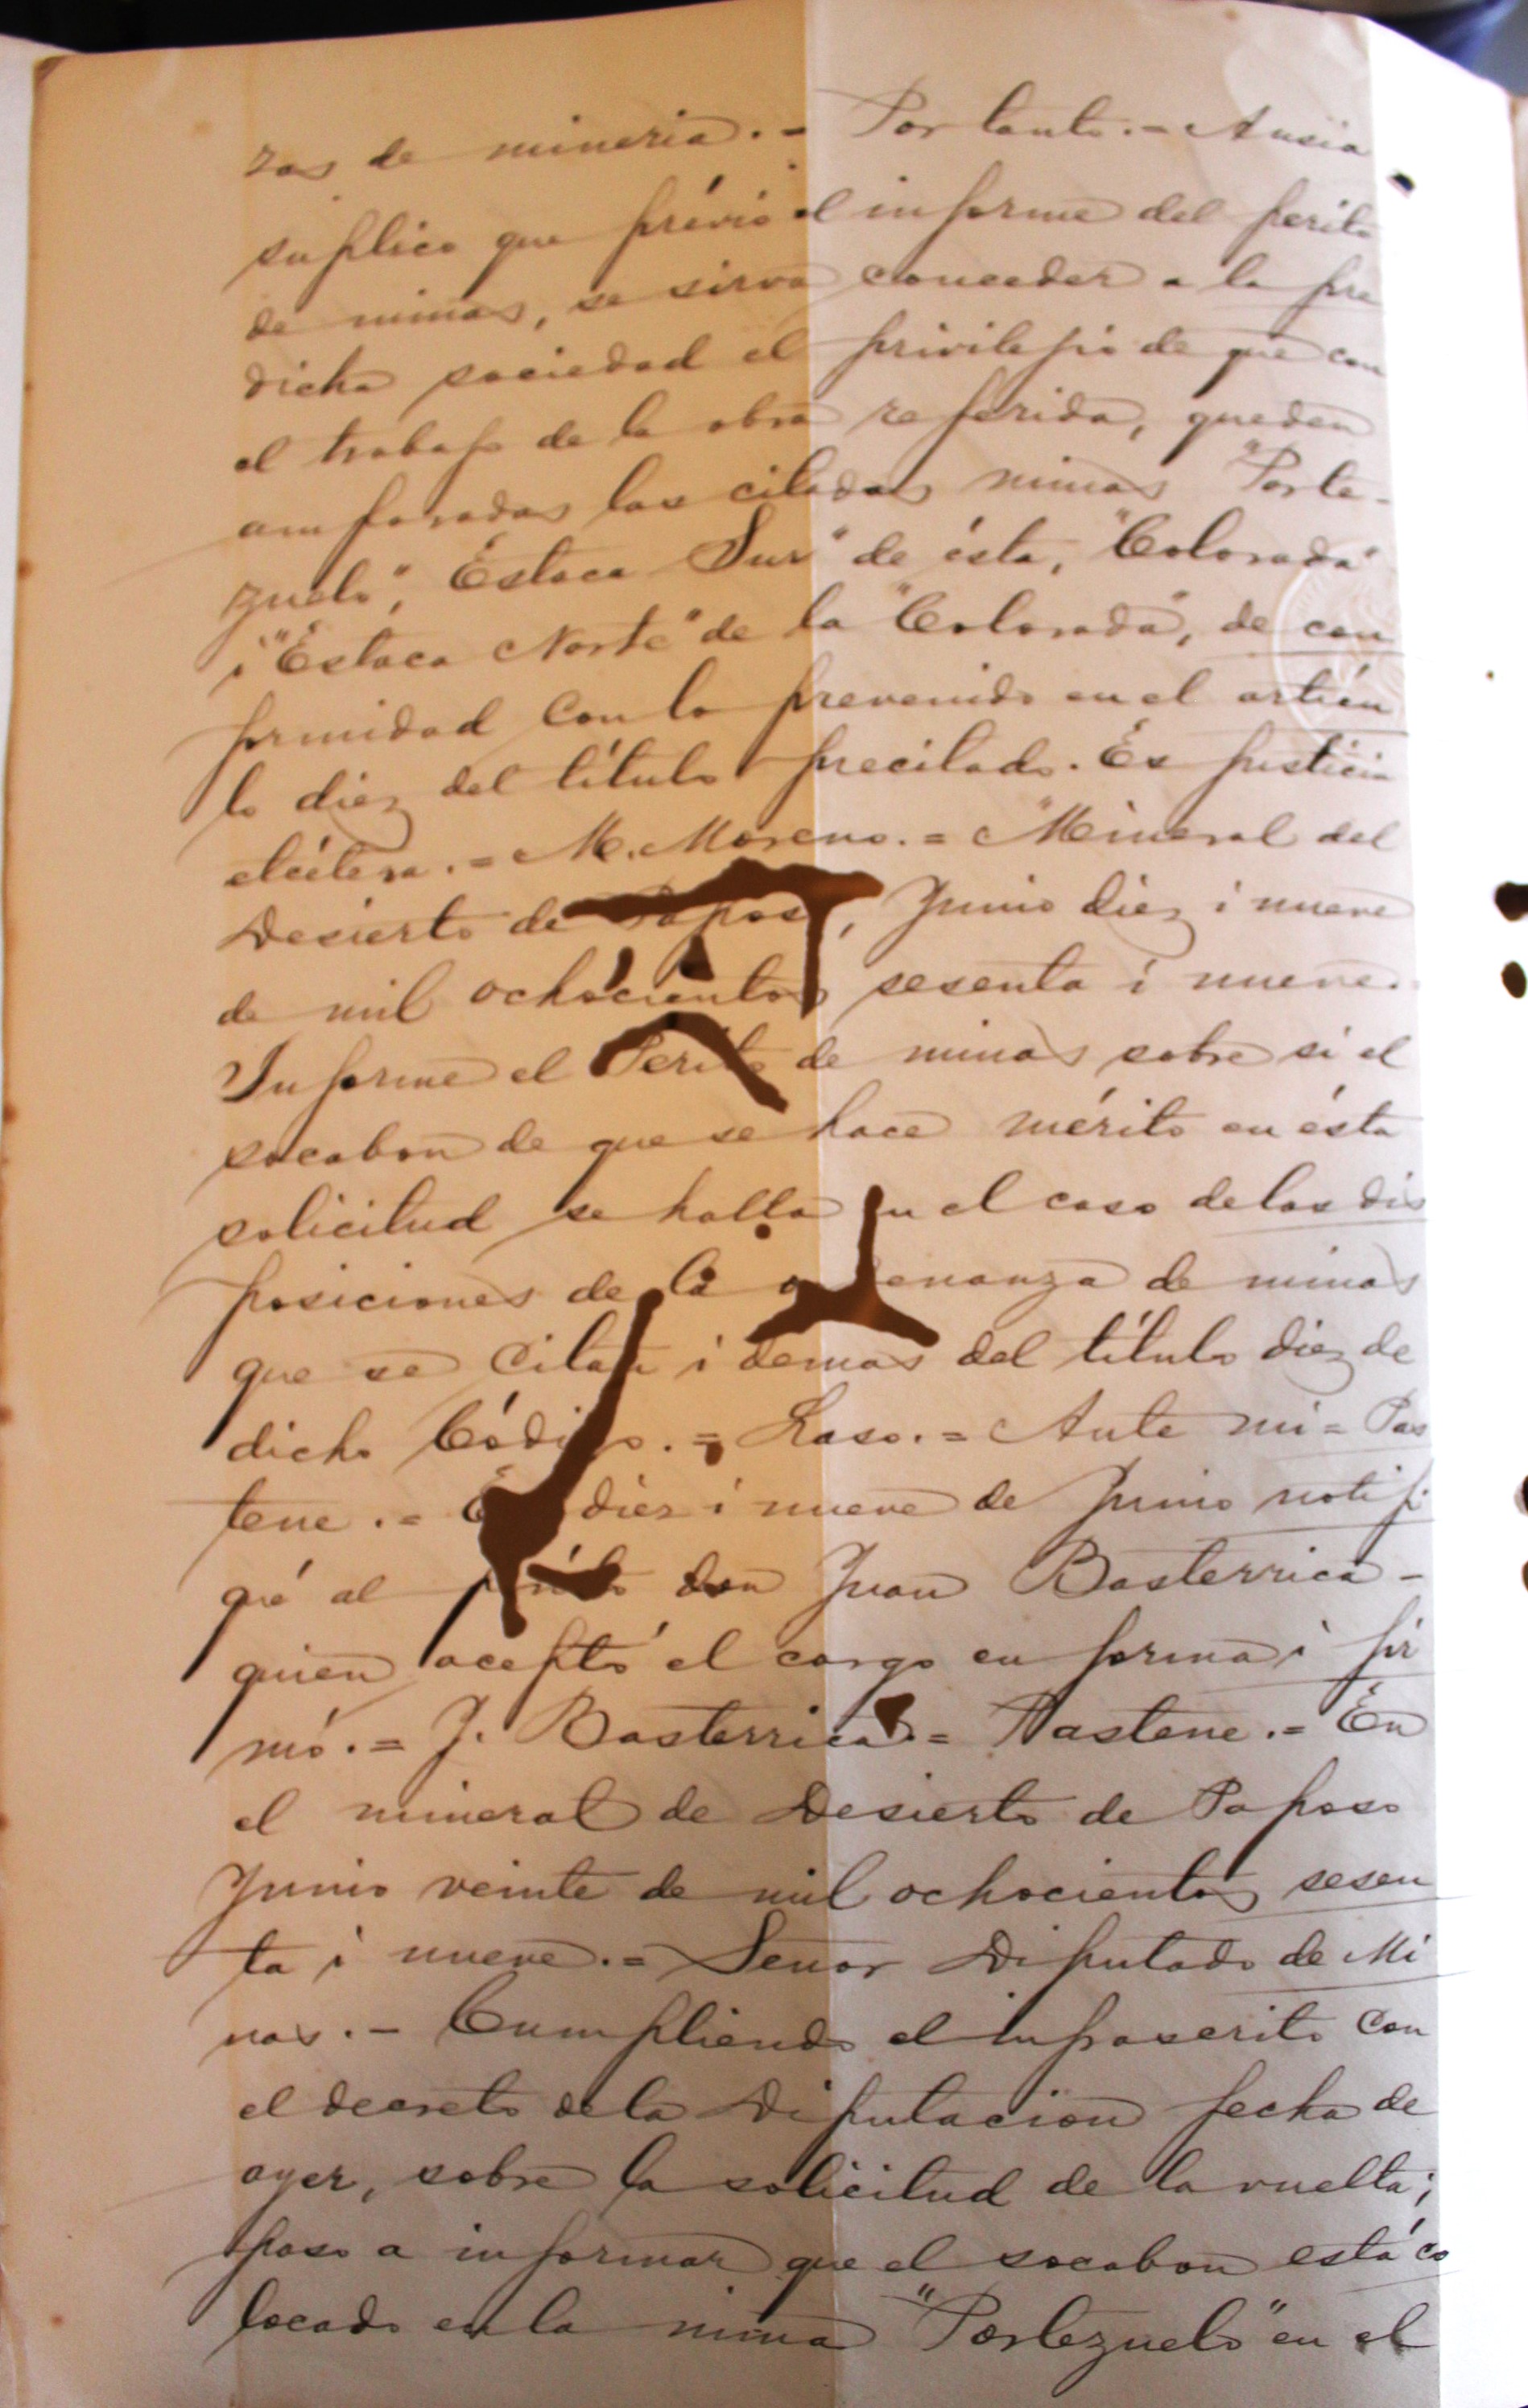 zas de mineria. = Por tanto. = A usia
suplico que prévio el informe del perito
de minas, se sirva conceder a la pre
dicha sociedad el privilejio de que con
el trabajo de la obra referida, queden
amparadas las citadas minas "Porte-
zuelo", "Estaca Sur" de ésta, "Colorada"
i "Estaca Norte" de la "Colorada", de con
formidad con lo prevenido en el artícu
lo diez del título precitado. Es justicia
etcétera. = M. Moreno. = Mineral del
Desierto de Paposo, Junio diez i nueve
de mil ochocientos sesenta i nueve.
Informe el Perito de minas sobre si el
socabon de que se hace mérito en ésta
solicitud se halla en el caso de las dis
posiciones de la enanza de minas
que se citan i demas del título diez de
dicho Código. = Laso. = Ante mi = Pas
tene. = En diez i nueve de Junio notifi
qué al perito don Juan Basterrica -
quien aceptó el cargo en forma i fir
mó. = J. Basterrica. = Pastene. = En
el mineral de Desierto de Paposo
Junio veinte de mil ochocientos sesen
ta i nueve. = Señor Diputado de Mi
nas. - Cumpliendo el infrascrito con
el decreto de la Diputacion fecha de
ayer, sobre la solicitud de la vuelta;
paso a informar que el socabon está co
locado en la mina "Portezuelo" en el